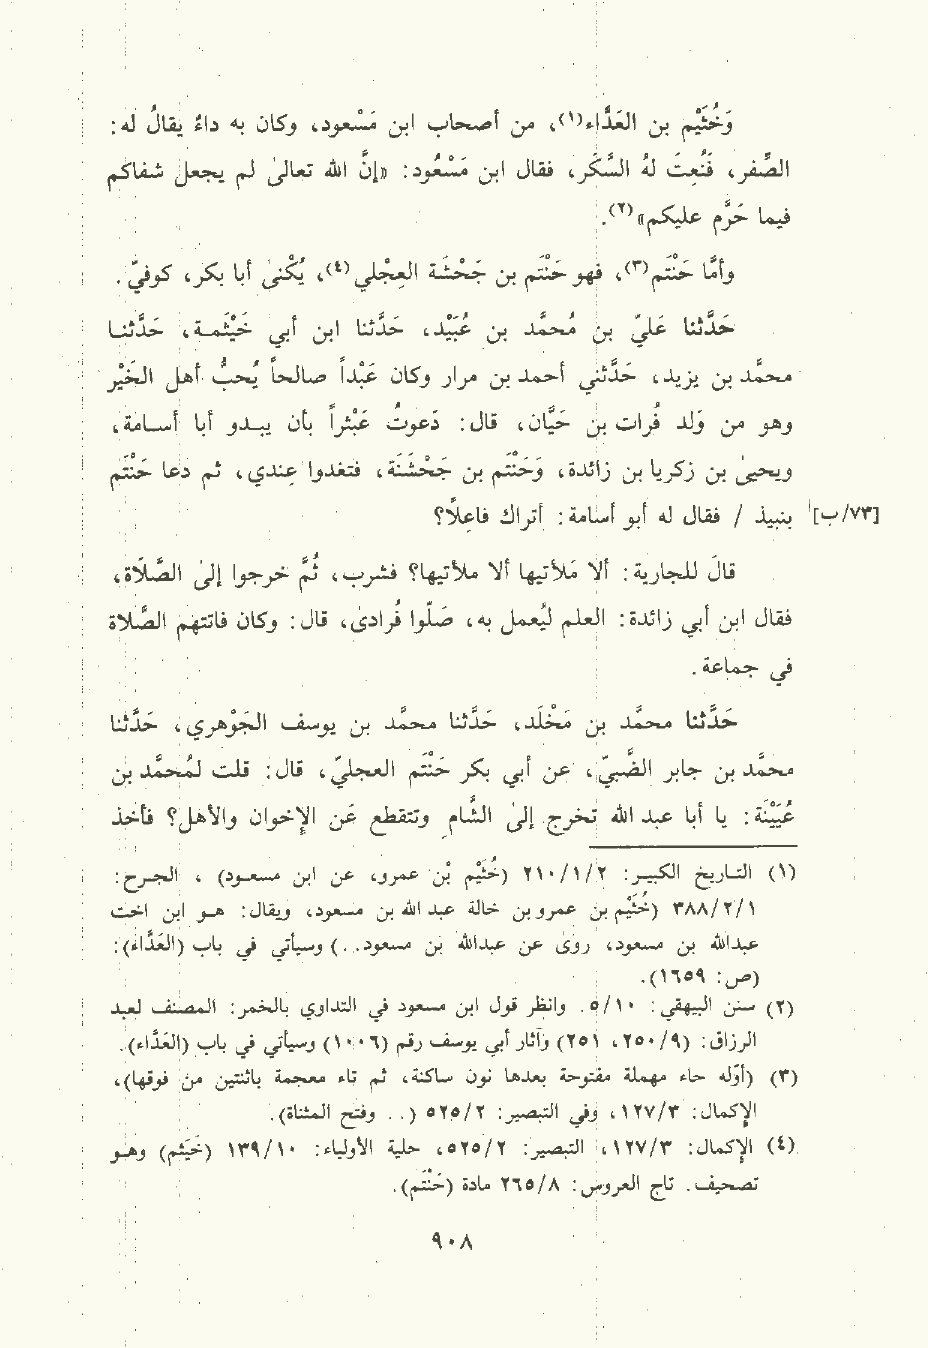 وَخُثَيْم بن العَدَّاء(١)، من أصحاب ابن مَسْعود، وكان به داءٌ يقالُ له:
الصِّفر، فَنُعِتَ لهُ السَّكَر، فقال ابن مَسْعُود: «إنَّ الله تعالىٰ لم يجعل شفاكم
فيما حَرَّم عليكم»(٢).
وأمَّا حَنْتَم(٣)، فهو حَنْتَم بن جَحْشَة العِجْلي(٤)، يُكْنىٰ أبا بكر، كوفيّ.
حَدَّثنا عَليّ بن محمَّد بن عُبَيْد، حَدَّثنا ابن أبي خَيْثَمة، حَدَّثنا
محمَّد بن يزيد، حَدَّثني أحمد بن مرار وكان عَبْداً صالحاً يُحبُّ أهل الخَيْر
وهو من وَلد فُرات بن حَيَّان، قال: دَعوتُ عَبْثراً بأن يبدو أبا أسامة،
ويحيىٰ بن زكريا بن زائدة، وَحَنْتَم بن جَحْشَنَة، فتغدوا عِندي، ثم دعا حَنْتَم
[٧٣/ب] بنبيذ / فقال له أبو أسامة: أتراك فاعِلاً؟
قالَ للجارية: ألا مَلأتيها ألا ملأتيها؟ فشرب، ثُمَّ خرجوا إلىٰ الصَّلاَة،
فقال ابن أبي زائدة: العلم ليُعمل به، صَلّوا فُرادىٰ، قال: وكان فاتتهم الصَّلاة
في جماعة.
حَدَّثنا محمَّد بن مَخْلَد، حَدَّثنا محمَّد بن يوسف الجَوْهري، حَدَّثنا
محمَّد بن جابر الضَّبيّ، عن أبي بكر حَنْتَم العجليّ، قال: قلت لمُحمَّد بن
عُيَيْنَة: يا أبا عبد الله تخرج إلىٰ الشَّام وتتقطع عَن الإخوان والأهل؟ فأخذ
(١) التاريخ الكبير: ٢/١/٢١٠ (خُثَيْم بْن عمرو، عن ابن مسعود) ، الجرح:
١/٢/٣٨٨ (خُثَيْم بن عمرو بن خالة عبد الله بن مسعود، ويقال: هو ابن اخت
عبدالله بن مسعود، روى عن عبدالله بن مسعود. .) وسيأتي في باب (العَدَّاء):
(ص: ١٦٥٩).
(٢) سنن البيهقي: ١٠/٥. وانظر قول ابن مسعود في التداوي بالخمر: المصنف لعبد
الرزاق: (٩/٢٥٠، ٢٥١) وآثار أبي يوسف رقم (١٠٠٦) وسيأتي في باب (العَدَّاء).
(٣) (أوّله حاء مهملة مفتوحة بعدها نون ساكنة، ثم تاء معجمة باثنتين من فوقها)،
الإكمال: ٣/١٢٧، وفي التبصير: ٢/٥٢٥ (. . وفتح المثناة).
(٤) الإكمال: ٣/١٢٧، التبصير: ٢/٥٢٥، حلية الأولياء: ١٠/١٣٩ (خَيْثم) وهو
تصحيف. تاج العروس: ٨/٢٦٥ مادة (حَنْتَم).
٩٠٨